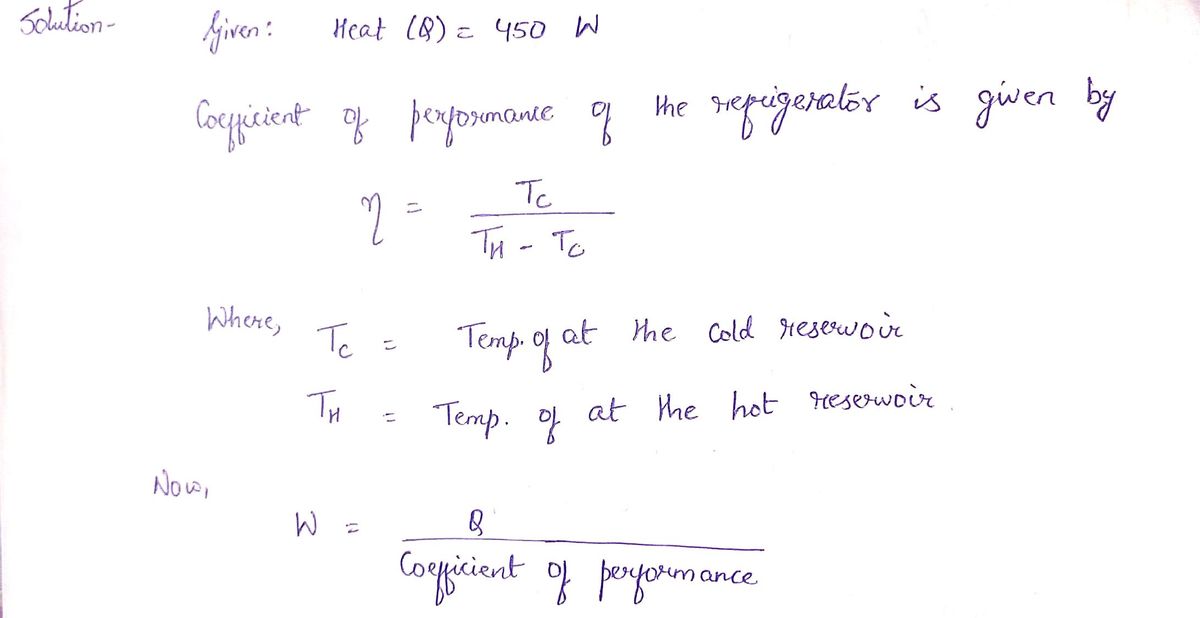 Solution- Given: Heat (Q) = 450 W
Coefficient of performance of the refrigerator is given by
η = T_C / (T_H - T_C)
Where, T_C = Temp. of at the cold reservoir
T_H = Temp. of at the hot reservoir.
Now,
W = Q / Coefficient of performance